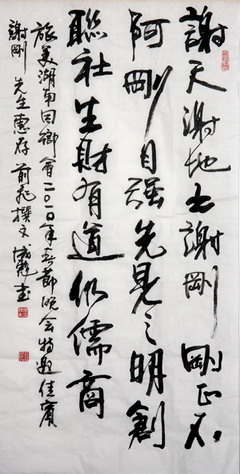 謝天謝地也謝剛 剛正不
阿剛自强先見之明創
聯社生財有道似儒商
旅美湖南同鄉會二〇一〇年春節晚会特邀佳賓
謝剛 先生惠存 前飛撰文